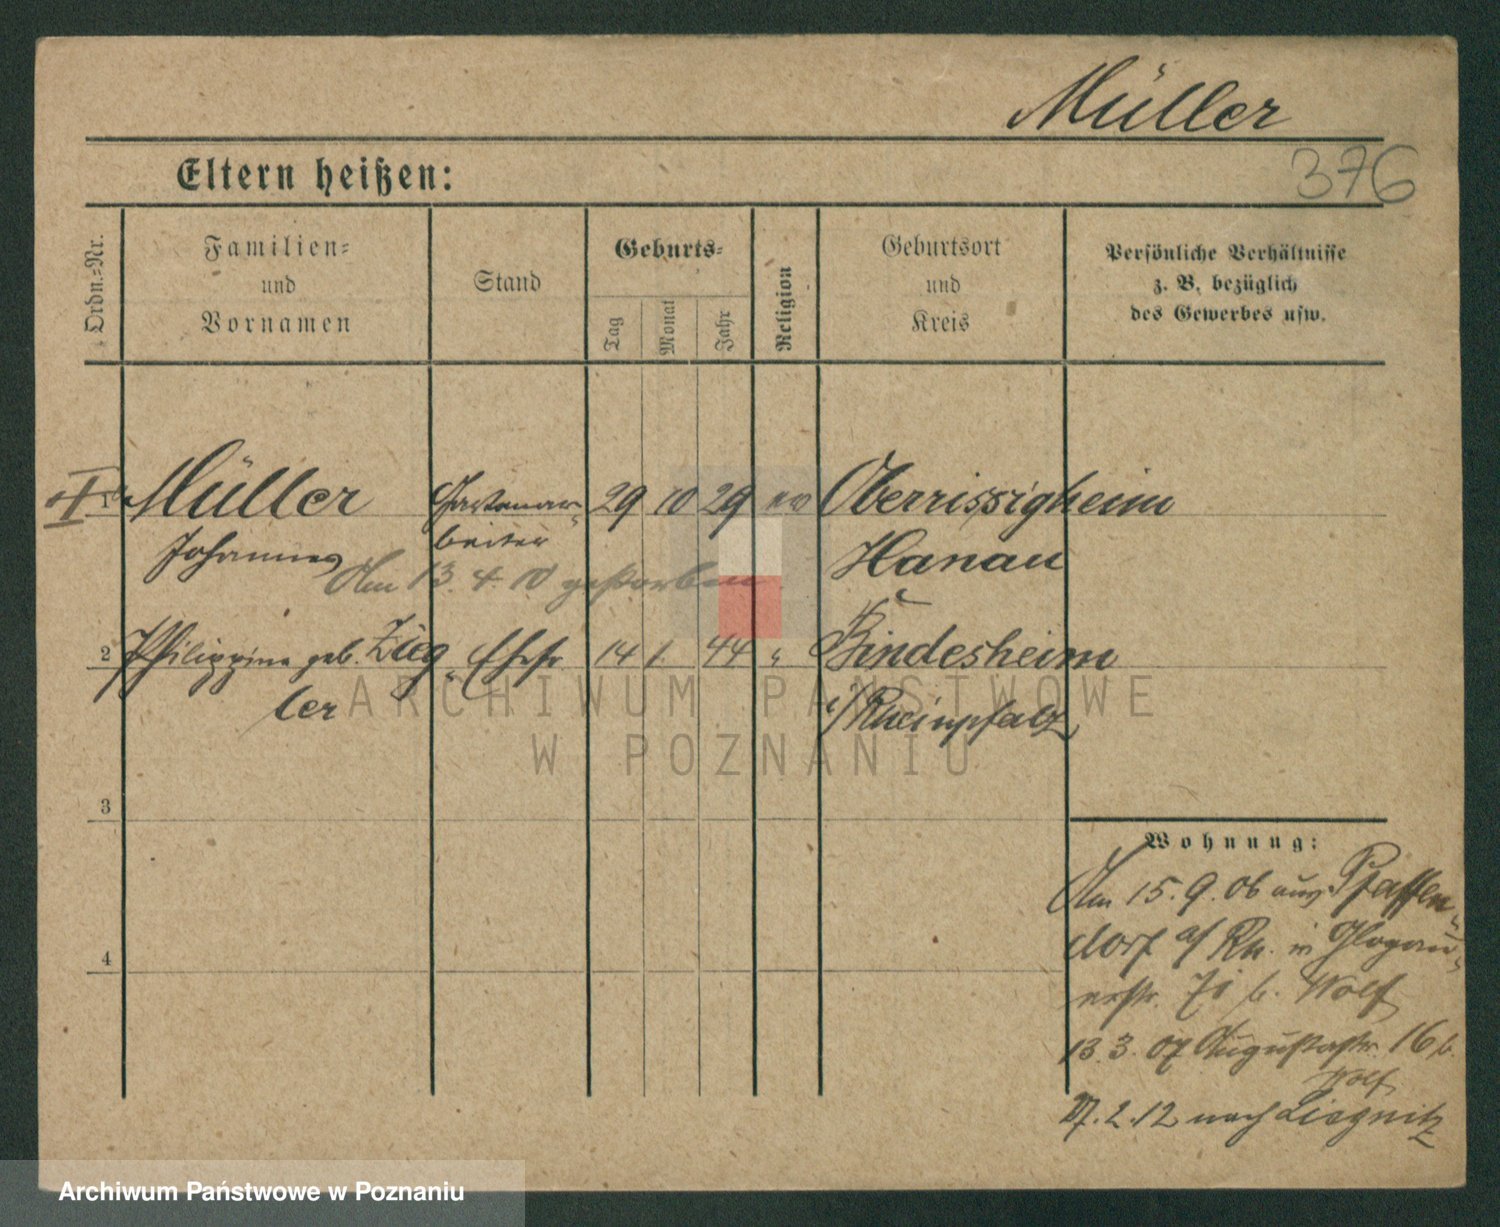 Müller
376
Eltern heißen:
Ordn.=Nr.
Familien=
und
Vornamen
Stand
Geburts=
Tag
Monat
Jahr
Religion
Geburtsort
und
Kreis
Persönliche Verhältnisse
z. B. bezüglich
des Gewerbes usw.
1 Müller Gartenar= 29 10 29 ev Oberrissigheim
Johannes beiter Hanau
Am 13. 4. 10 gestorben
2 Philippine geb. Zieg= Ehefr 14 1. 44 " Bindesheim
ler i/Rheinpfalz
3
4
Wohnung:
Am 15. 9. 06 aus Pfaffen=
dorf a/ Rh. in Glogau=
erstr. b. Wolf
13. 3. 07 Augustastr. 16 b.
Wolf
27. 2. 12 nach Liegnitz
ARCHIWUM PAŃSTWOWE
W POZNANIU
Archiwum Państwowe w Poznaniu